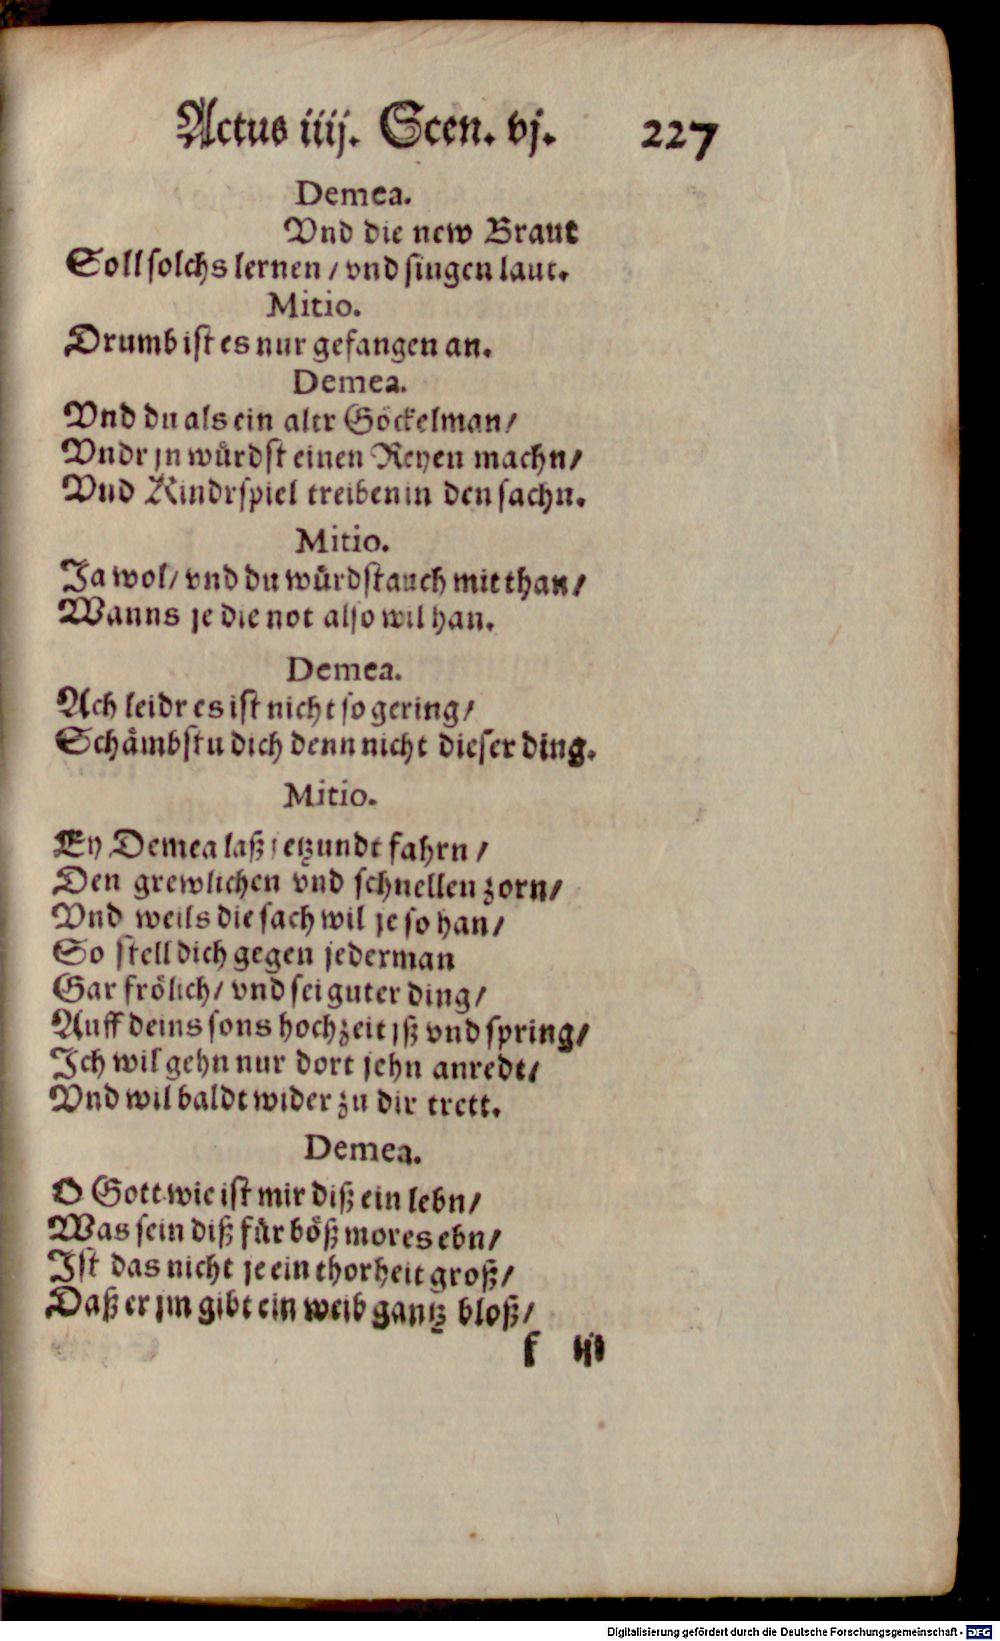 Actus iiij. Scen. vj. 227
Demea.
Vnd die new Braut
Soll solchs lernen / vnd singen laut.
Mitio.
Drumb ist es nur gefangen an.
Demea.
Vnd du als ein altr Göckelman /
Vndr jn würdst einen Reyen machn /
Vnd Kindrspiel treiben in den sachn.
Mitio.
Ja wol / vnd du würdst auch mit than /
Wanns je die not also wil han.
Demea.
Ach leidr es ist nicht so gering /
Schämbstu dich denn nicht dieser ding.
Mitio.
Ey Demea laß jetzundt fahrn /
Den grewlichen vnd schnellen zorn /
Vnd weils die sach wil je so han /
So stell dich gegen jederman
Gar frölich / vnd sei guter ding /
Auff deins sons hochzeit jß vnd spring /
Ich wil gehn nur dort jehn anredt /
Vnd wil baldt wider zu dir trett.
Demea.
O Gott wie ist mir diß ein lebn /
Was sein diß für böß mores ebn /
Ist das nicht je ein thorheit groß /
Daß er jm gibt ein weib gantz bloß /
f iij
Digitalisierung gefördert durch die Deutsche Forschungsgemeinschaft - DFG